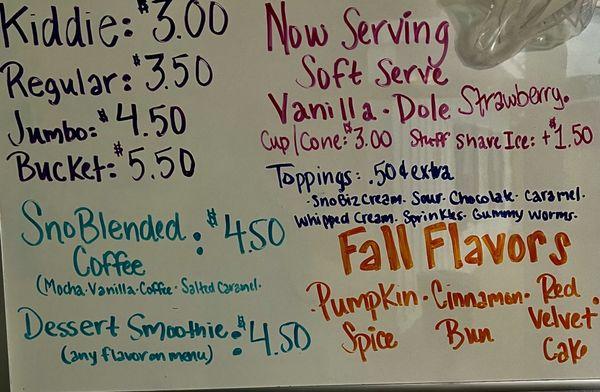 Kiddie: $3.00
Regular: $3.50
Jumbo: $4.50
Bucket: $5.50
SnoBlended: $4.50
Coffee
(Mocha·Vanilla·Coffee·Salted Caramel·
Dessert Smoothie: $4.50
(any flavor on menu)
Now Serving
Soft Serve
Vanilla · Dole Strawberry.
Cup/Cone: $3.00 Stuff Shave Ice: +$1.50
Toppings: .50¢ extra
·SnoBizCream· Sour· Chocolak· Caramel·
Whipped Cream· Sprinkles· Gummy Worms·
Fall Flavors
·Pumpkin · Cinnamon · Red ·
Spice Bun Velvet
Cake